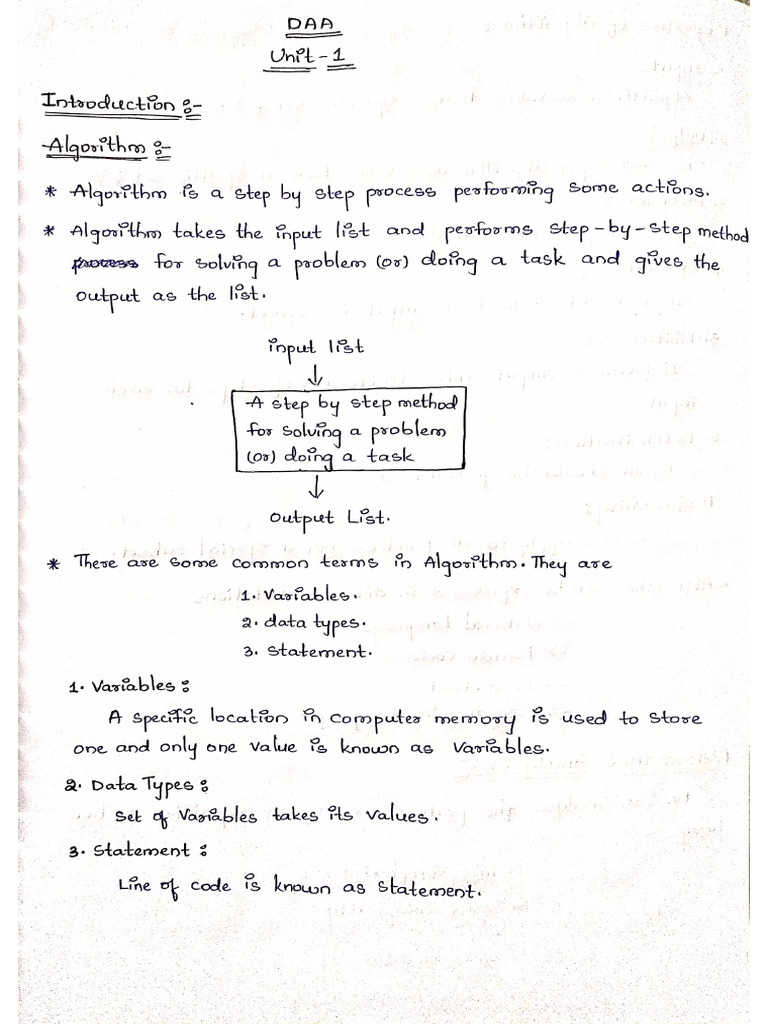 DAA
Unit-1
Introduction :-
Algorithm :-
* Algorithm is a step by step process performing some actions.
* Algorithm takes the input list and performs step-by-step method
process for solving a problem (or) doing a task and gives the
output as the list.
input list
↓
A step by step method
for solving a problem
(or) doing a task
↓
output List.
* There are some common terms in Algorithm. They are
1. Variables.
2. data types.
3. statement.
1. Variables :
A specific location in computer memory is used to store
one and only one value is known as variables.
2. Data Types :
set of variables takes its values.
3. Statement :
Line of code is known as statement.